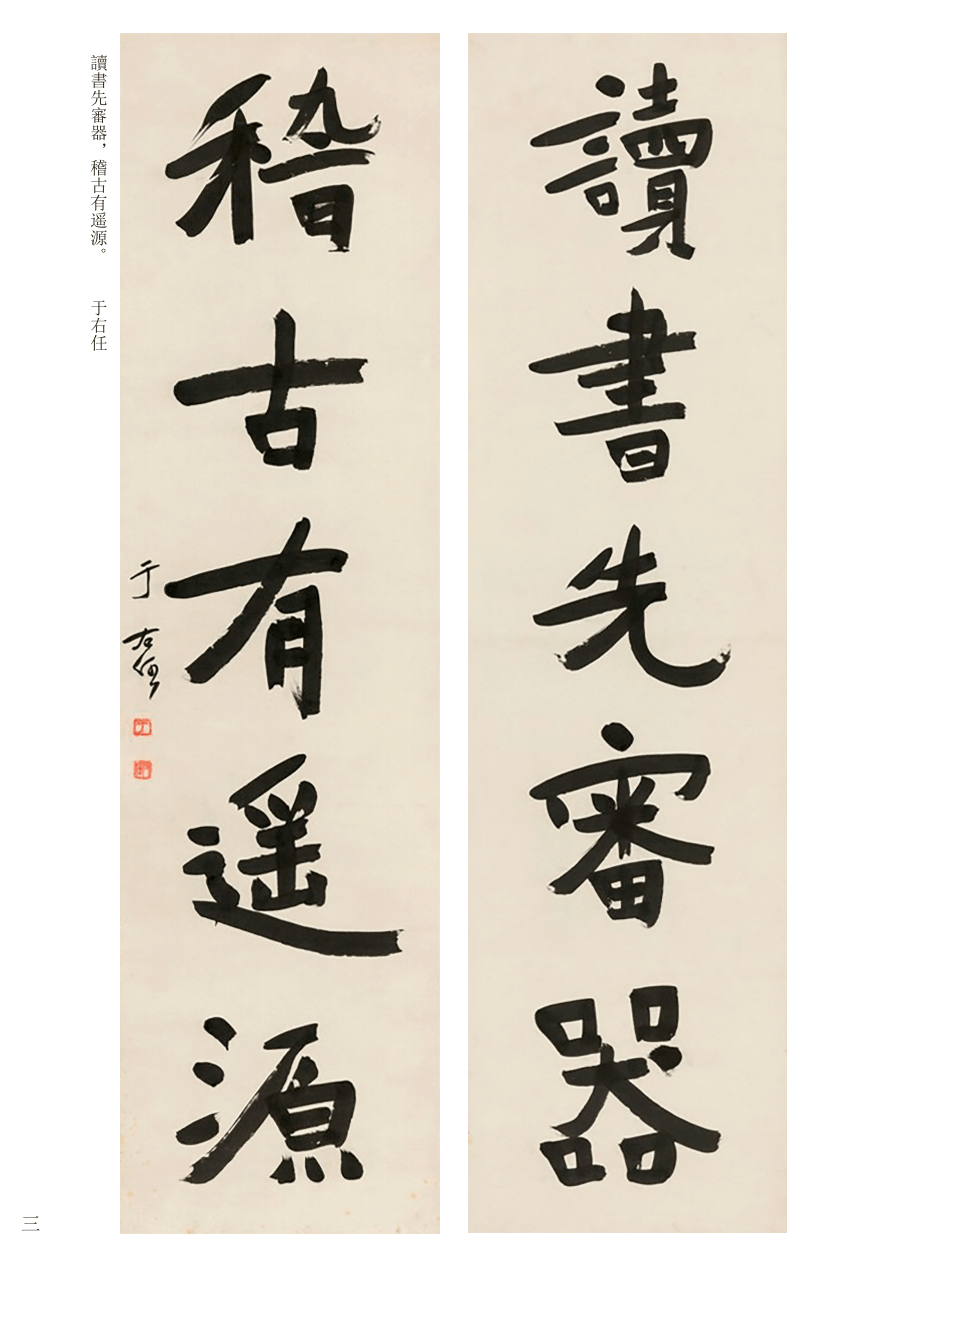 讀書先審器
稽古有遥源
于右任
讀書先審器，稽古有遥源。 于右任
三